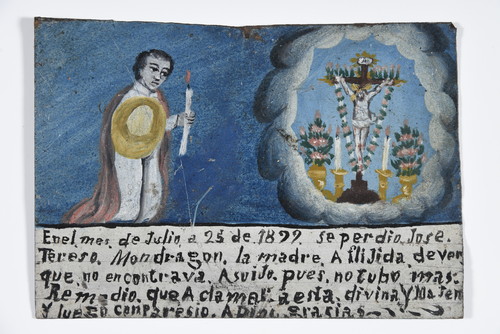 Enel mes de Julio a 25 de 1899 se perdio Jose.
Tereso Mondragon, la madre, Aflijida de ver
que, no encontrava, Asuijo, pues, no tubo mas.
Remedio, que Aclamar a esta, divina Ymajen
Y luego conparesio. A Dios grasias